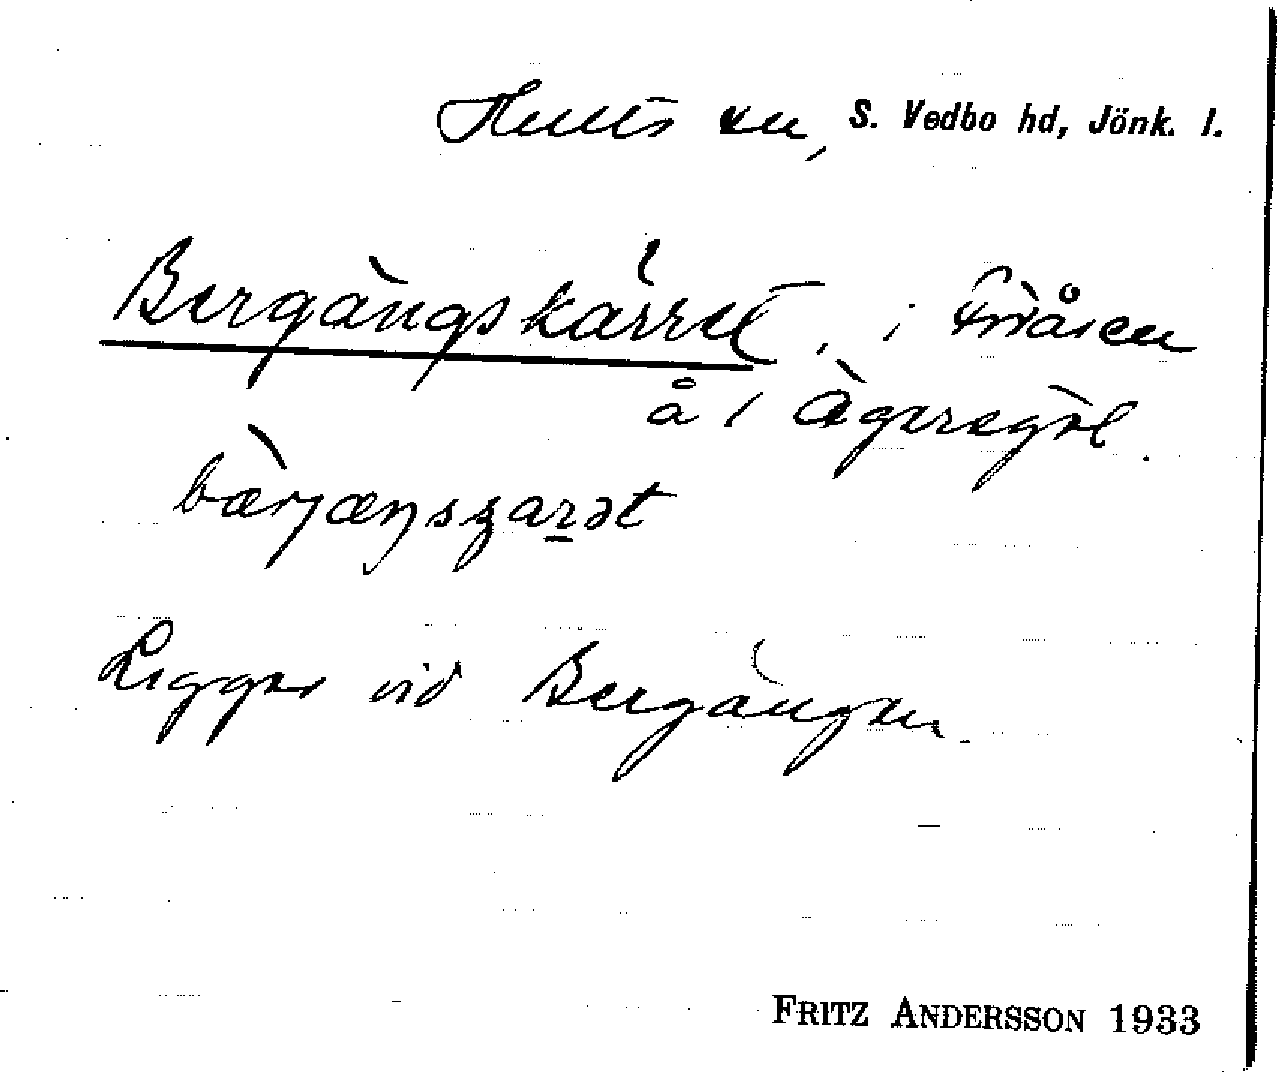 Hults sn, S. Vedbo hd, Jönk. l.
Bergängskärret, i Friåsen
å i Ägeregöl.
bærjæŋsꝁarət
Ligger vid Bergängen.
FRITZ ANDERSSON 1933